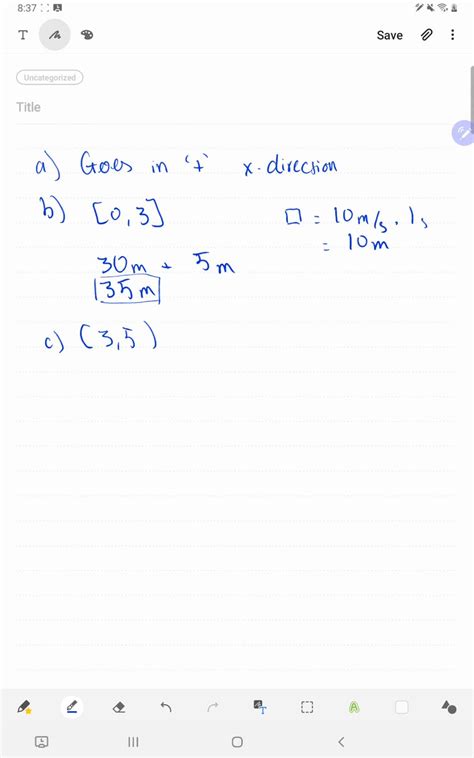 8:37
T
Save
Uncategorized
Title
a) Goes in '+' x-direction
b) [0,3]
□ = 10 m/s · 1s
= 10m
30m + 5m
35m
c) (3,5)
T
A